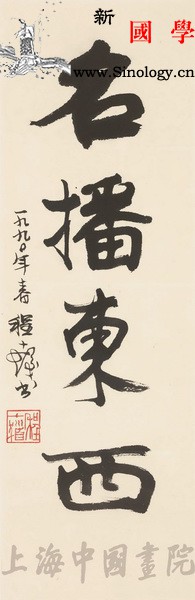 新
國學
www.Sinology.cn
名播東西
一九九〇年春 程十髮書
上海中國畫院